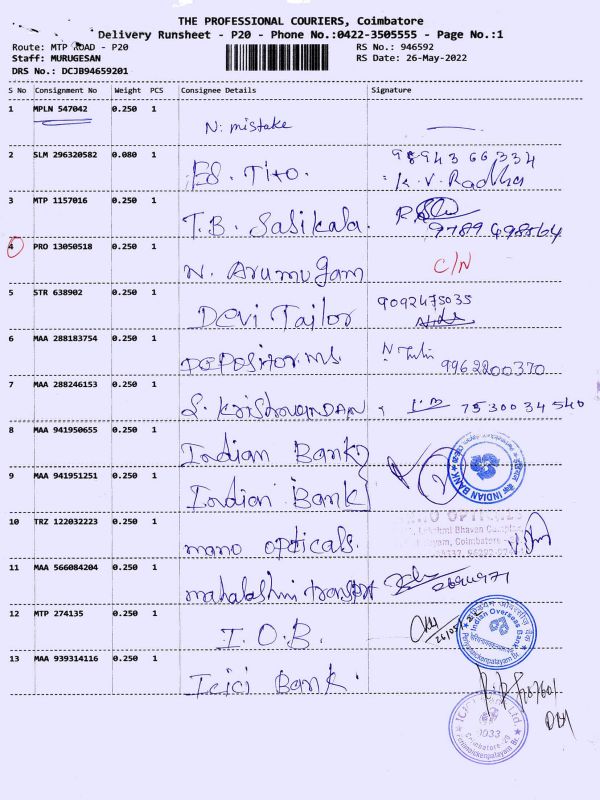 THE PROFESSIONAL COURIERS, Coimbatore
Delivery Runsheet - P20 - Phone No.:0422-3505555 - Page No.:1
Route: MTP ROAD - P20
RS No.: 946592
Staff: MURUGESAN
RS Date: 26-May-2022
DRS No.: DCJB94659201
S No Consignment No Weight PCS Consignee Details Signature
1 MPLN 547042 0.250 1 N: mistake
2 SLM 296320582 0.080 1 ES. Tito. 98943 66334
K.V. Radha
3 MTP 1157016 0.250 1 T.B. Sasikala.
4 PRO 13050518 0.250 1 N. Arumugam C/N
5 STR 638902 0.250 1 Devi Tailor 9092475035
6 MAA 288183754 0.250 1 9962200370
7 MAA 288246153 0.250 1 75300 34540
8 MAA 941950655 0.250 1 Indian Bank
9 MAA 941951251 0.250 1 Indian Bank INDIAN BANK
10 TRZ 122032223 0.250 1 mano opticals.
11 MAA 566084204 0.250 1 mahalashmi transport
12 MTP 274135 0.250 1 I.O.B. Indian Overseas Bank
13 MAA 939314116 0.250 1 Icici Bank.